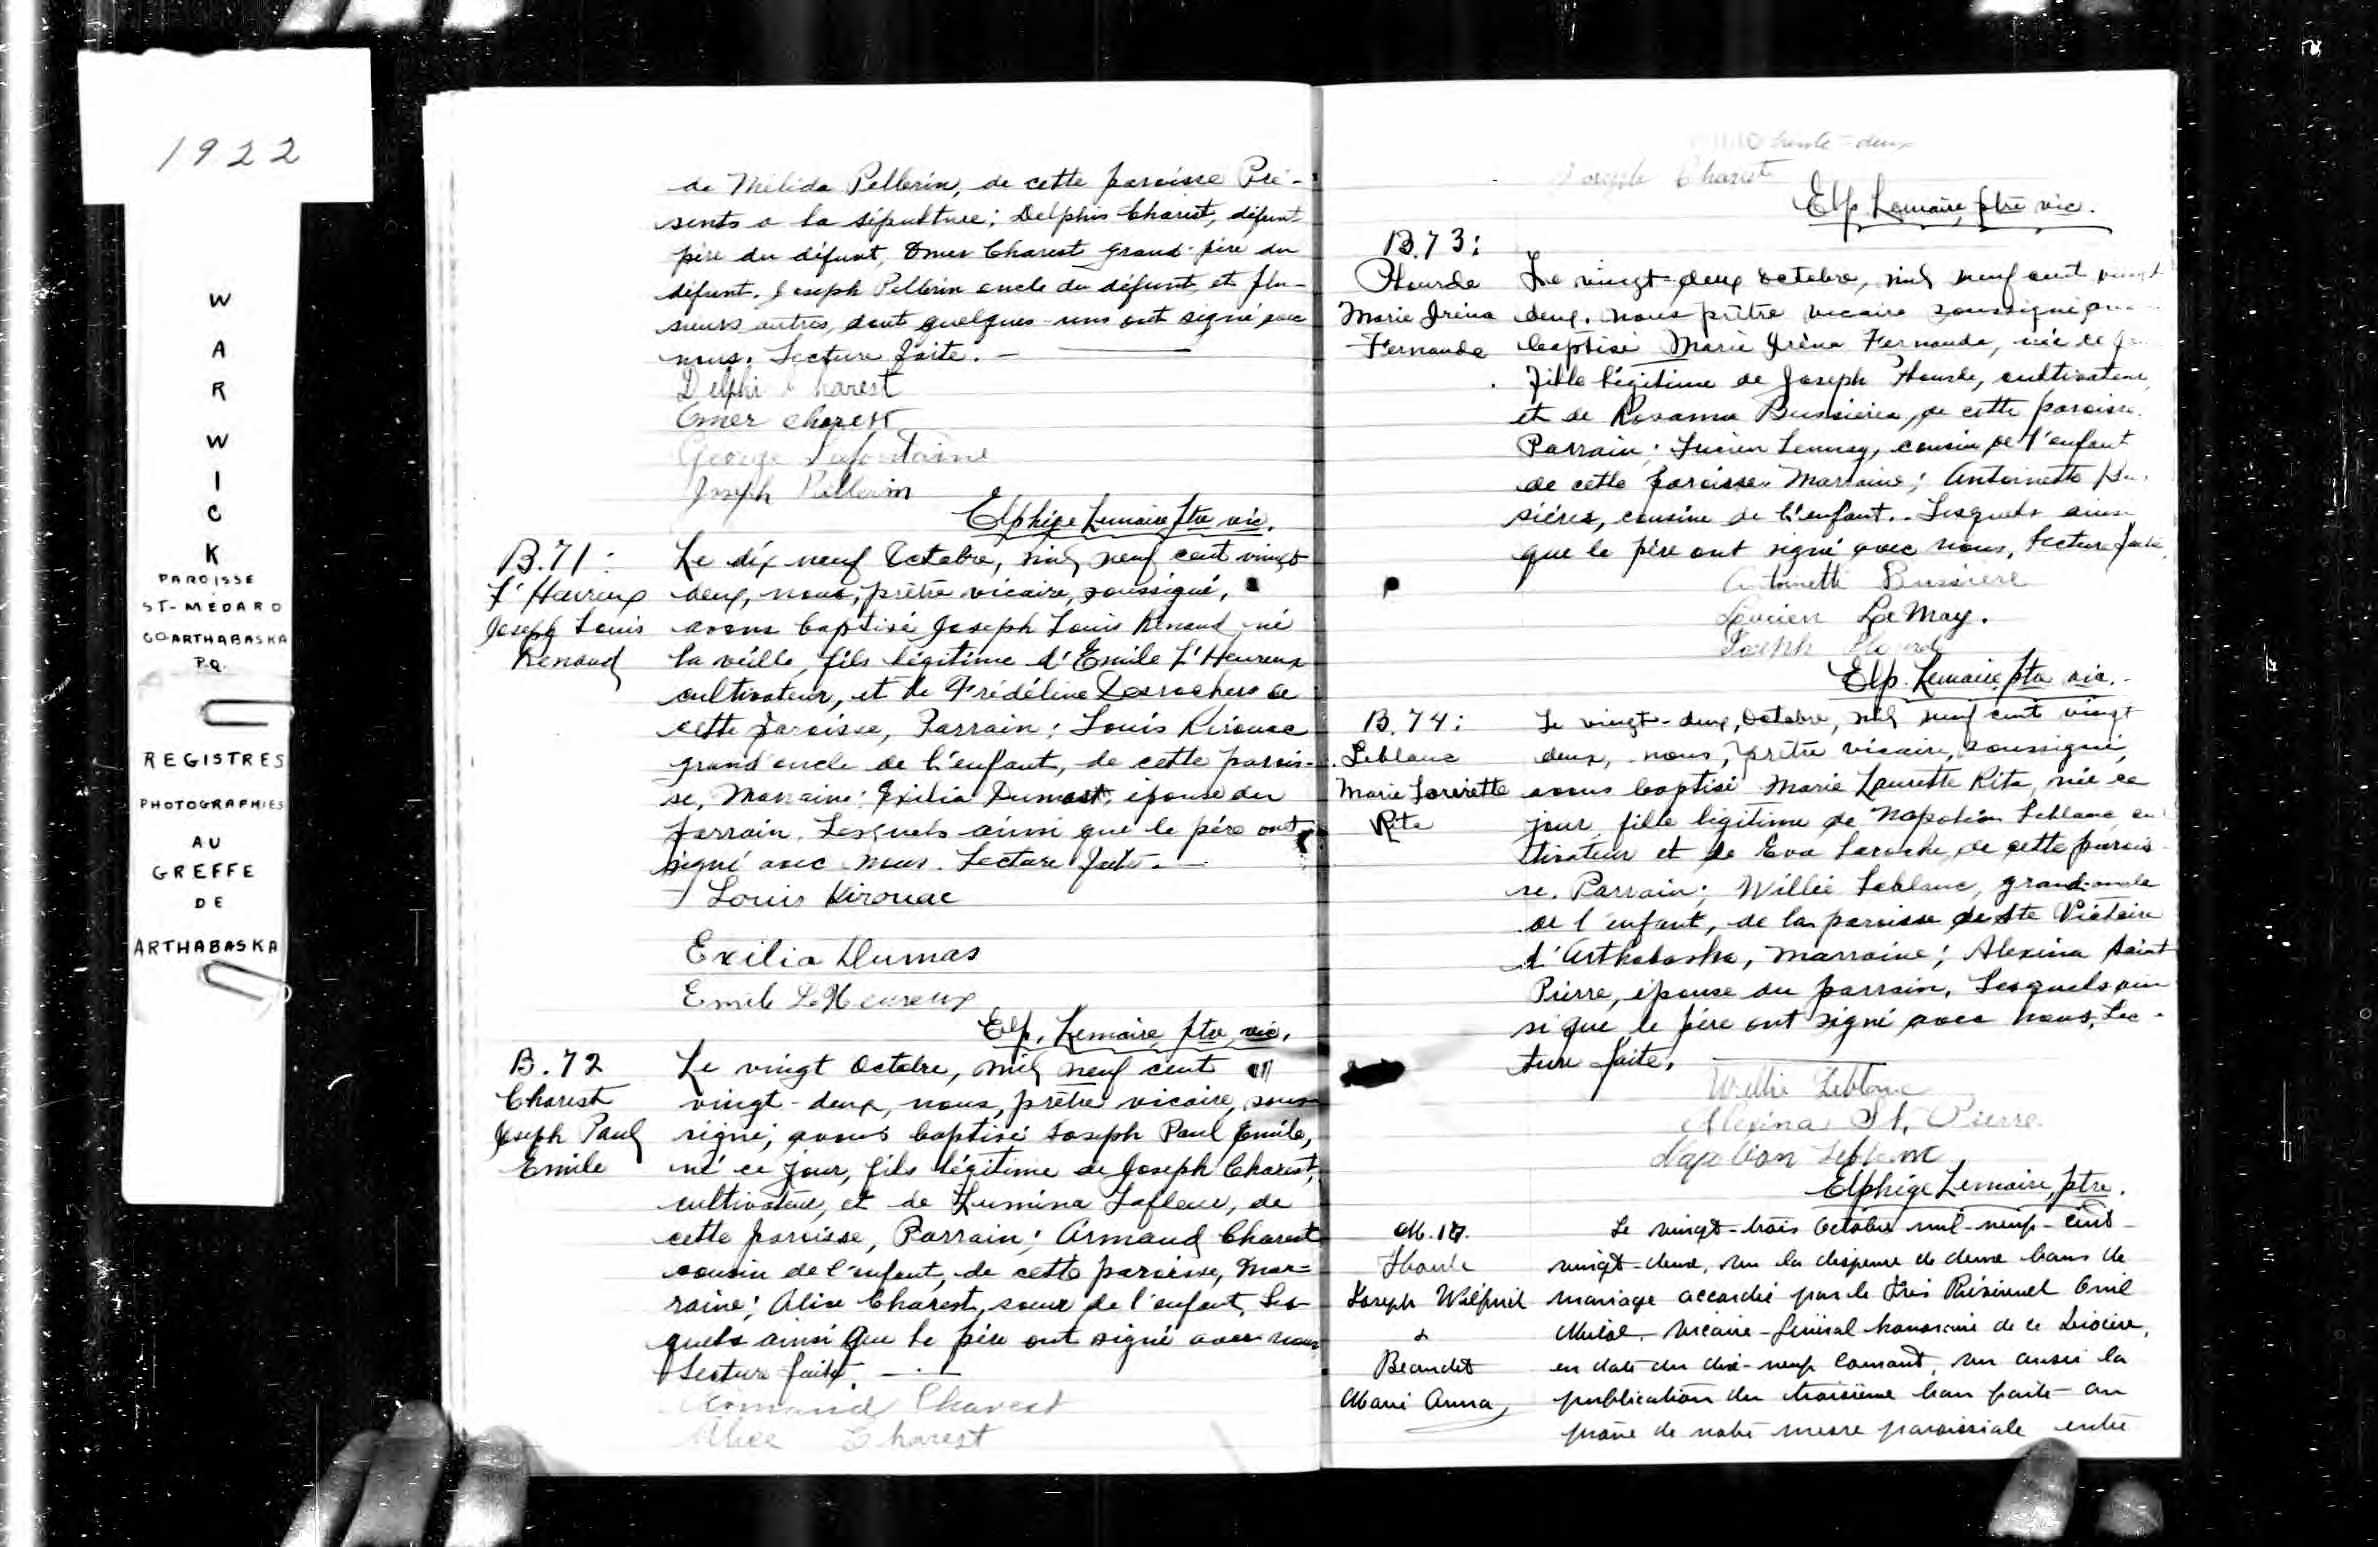 1922
W
A
R
W
I
C
K
PAROISSE
ST-MÉDARD
CO ARTHABASKA
P.Q.
REGISTRES
PHOTOGRAPHIES
AU
GREFFE
DE
ARTHABASKA
de Mélida Pellerin, de cette paroisse Pré-
sents a la sépulture: Delphis Charest, défunt
père du défunt, Omer Charest grand-père du
défunt, Joseph Pellerin oncle du défunt, et plu-
sieurs autres, dont quelques-uns ont signé avec
nous. Lecture faite. —
Delphi Charest
Omer Charest
George Lafontaine
Joseph Pellerin
Elphège Lemaire ptre vic.
B.71:
L'Heureux
Joseph Louis
Renaud
Le dix neuf Octobre, mil neuf cent vingt
deux, nous, prêtre vicaire, soussigné,
avons baptisé Joseph Louis Renaud né
la veille, fils légitime d'Emile L'Heureux
cultivateur, et de Frédéline Desrochers de
cette paroisse, Parrain: Louis Kirouac
grand oncle de l'enfant, de cette parois-
se, Marraine: Exilia Dumas, épouse du
parrain. Lesquels ainsi que le père ont
signé avec nous. Lecture faite. —
Louis Kirouac
Exilia Dumas
Emile L'Heureux
Elp. Lemaire ptre vic.
B.72
Charest
Joseph Paul
Emile
Le vingt Octobre, mil neuf cent
vingt-deux, nous, prêtre vicaire, sous-
signé, avons baptisé Joseph Paul Emile,
né ce jour, fils légitime de Joseph Charest,
cultivateur, et de Lumina Lafleur, de
cette paroisse, Parrain: Armand Charest
cousin de l'enfant, de cette paroisse, Mar=
raine: Alice Charest, soeur de l'enfant, Les-
quels ainsi que le père ont signé avec nous
Lecture faite. —
Armand Charest
Alice Charest
trente-deux
Joseph Charest
Elp. Lemaire, ptre vic.
B.73:
Plourde
Marie Iréna
Fernande
Le vingt-deux octobre, mil neuf cent vingt
deux, nous prêtre vicaire soussigné
baptisé Marie Iréna Fernande, née ce
fille légitime de Joseph Plourde, cultivateur,
et de Rosanna Bussières, de cette paroisse.
Parrain: Lucien Lemay, cousin de l'enfant
de cette paroisse. Marraine; Antoinette
sières, cousine de l'enfant. Lesquels ainsi
que le père ont signé avec nous, Lecture faite.
Antoinette Bussiere
Lucien LeMay.
Joseph Plourde
Elp. Lemaire ptre vic.
B.74:
Leblanc
Marie Laurette
Rita
Le vingt-deux, Octobre, mil neuf cent vingt
deux, nous, prêtre vicaire, soussigné,
avons baptisé Marie Laurette Rita, née ce
jour, fille légitime de Napoléon Leblanc, cul
tivateur et de Eva Laroche, de cette parois-
se. Parrain; Willie Leblanc, grand-oncle
de l'enfant, de la paroisse de Ste Victoire
d'Arthabaska, Marraine; Alexina Saint
Pierre, épouse du parrain. Lesquels ain
si que le père ont signé avec nous, Lec-
ture faite.
Willie Leblanc
Alexina St. Pierre
Napoléon Leblanc
Elphège Lemaire, ptre.
M.17.
Houle
Joseph Wilfrid
&
Beaudet
Marie Anna
Le vingt-trois Octobre mil-neuf-cent-
vingt-deux, vu la dispense de deux bans de
mariage accordée par le Très Révérend
vicaire-général honoraire de ce diocèse,
en date du dix-neuf courant, vu aussi la
publication du troisième ban faite au
prône de notre messe paroissiale entre